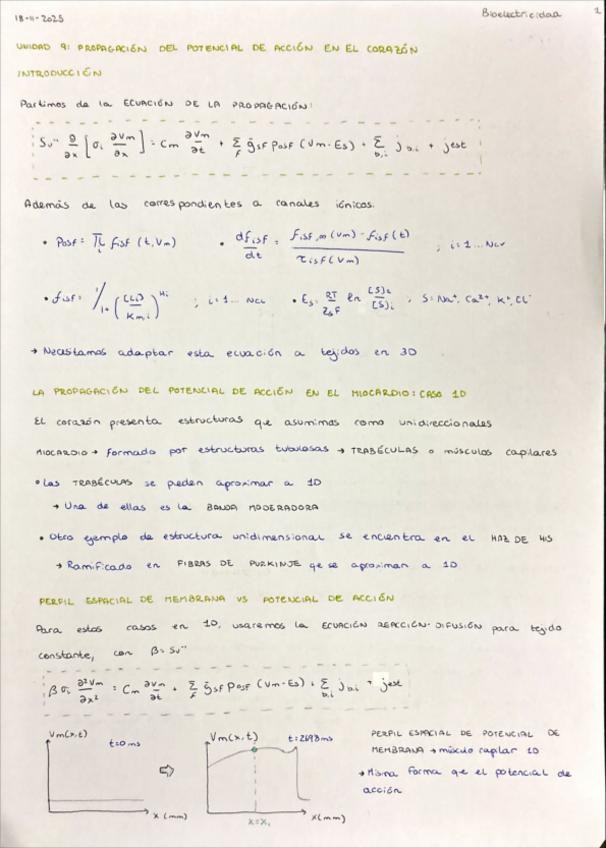 18-11-2025
Bioelectricidad
1
UNIDAD 9: PROPAGACIÓN DEL POTENCIAL DE ACCIÓN EN EL CORAZÓN
INTRODUCCIÓN
Partimos de la ECUACIÓN DE LA PROPAGACIÓN:
Sv⁻¹ ∂/∂x [σi ∂Vm/∂x] = Cm ∂Vm/∂t + Σ_F ḡSF POSF (Vm - ES) + Σ_b,i jb,i + jest
Además de las correspondientes a canales iónicos:
• POSF = Π_i fiSF (t, Vm) • dfiSF/dt = (fiSF,∞ (Vm) - fiSF (t)) / τiSF (Vm) ; i = 1... Ncv
; i = 1... NcL • ES = RT/ZSF ln [S]e/[S]i ; S = Na⁺, Ca²⁺, K⁺, Cl⁻
→ Necesitamos adaptar esta ecuación a tejidos en 3D
LA PROPAGACIÓN DEL POTENCIAL DE ACCIÓN EN EL MIOCARDIO: CASO 1D
El corazón presenta estructuras que asumimos como unidireccionales
MIOCARDIO → formado por estructuras tubulosas → TRABÉCULAS o músculos capilares
• Las TRABÉCULAS se pueden aproximar a 1D
→ Una de ellas es la BANDA MODERADORA
• Otro ejemplo de estructura unidimensional se encuentra en el HAZ DE HIS
→ Ramificado en FIBRAS DE PURKINJE qe se aproximan a 1D
PERFIL ESPACIAL DE MEMBRANA VS POTENCIAL DE ACCIÓN
Para estos casos en 1D, usaremos la ECUACIÓN REACCIÓN-DIFUSIÓN para tejido
constante, con β = Sv⁻¹
β σi ∂²Vm/∂x² = Cm ∂Vm/∂t + Σ_F ḡSF POSF (Vm - ES) + Σ_b,i jb,i + jest
Vm(x,t)
t=0ms
x (mm)
Vm(x,t)
t=2698ms
x=x₁
x(mm)
PERFIL ESPACIAL DE POTENCIAL DE
MEMBRANA → músculo capilar 1D
→ Misma forma que el potencial de
acción